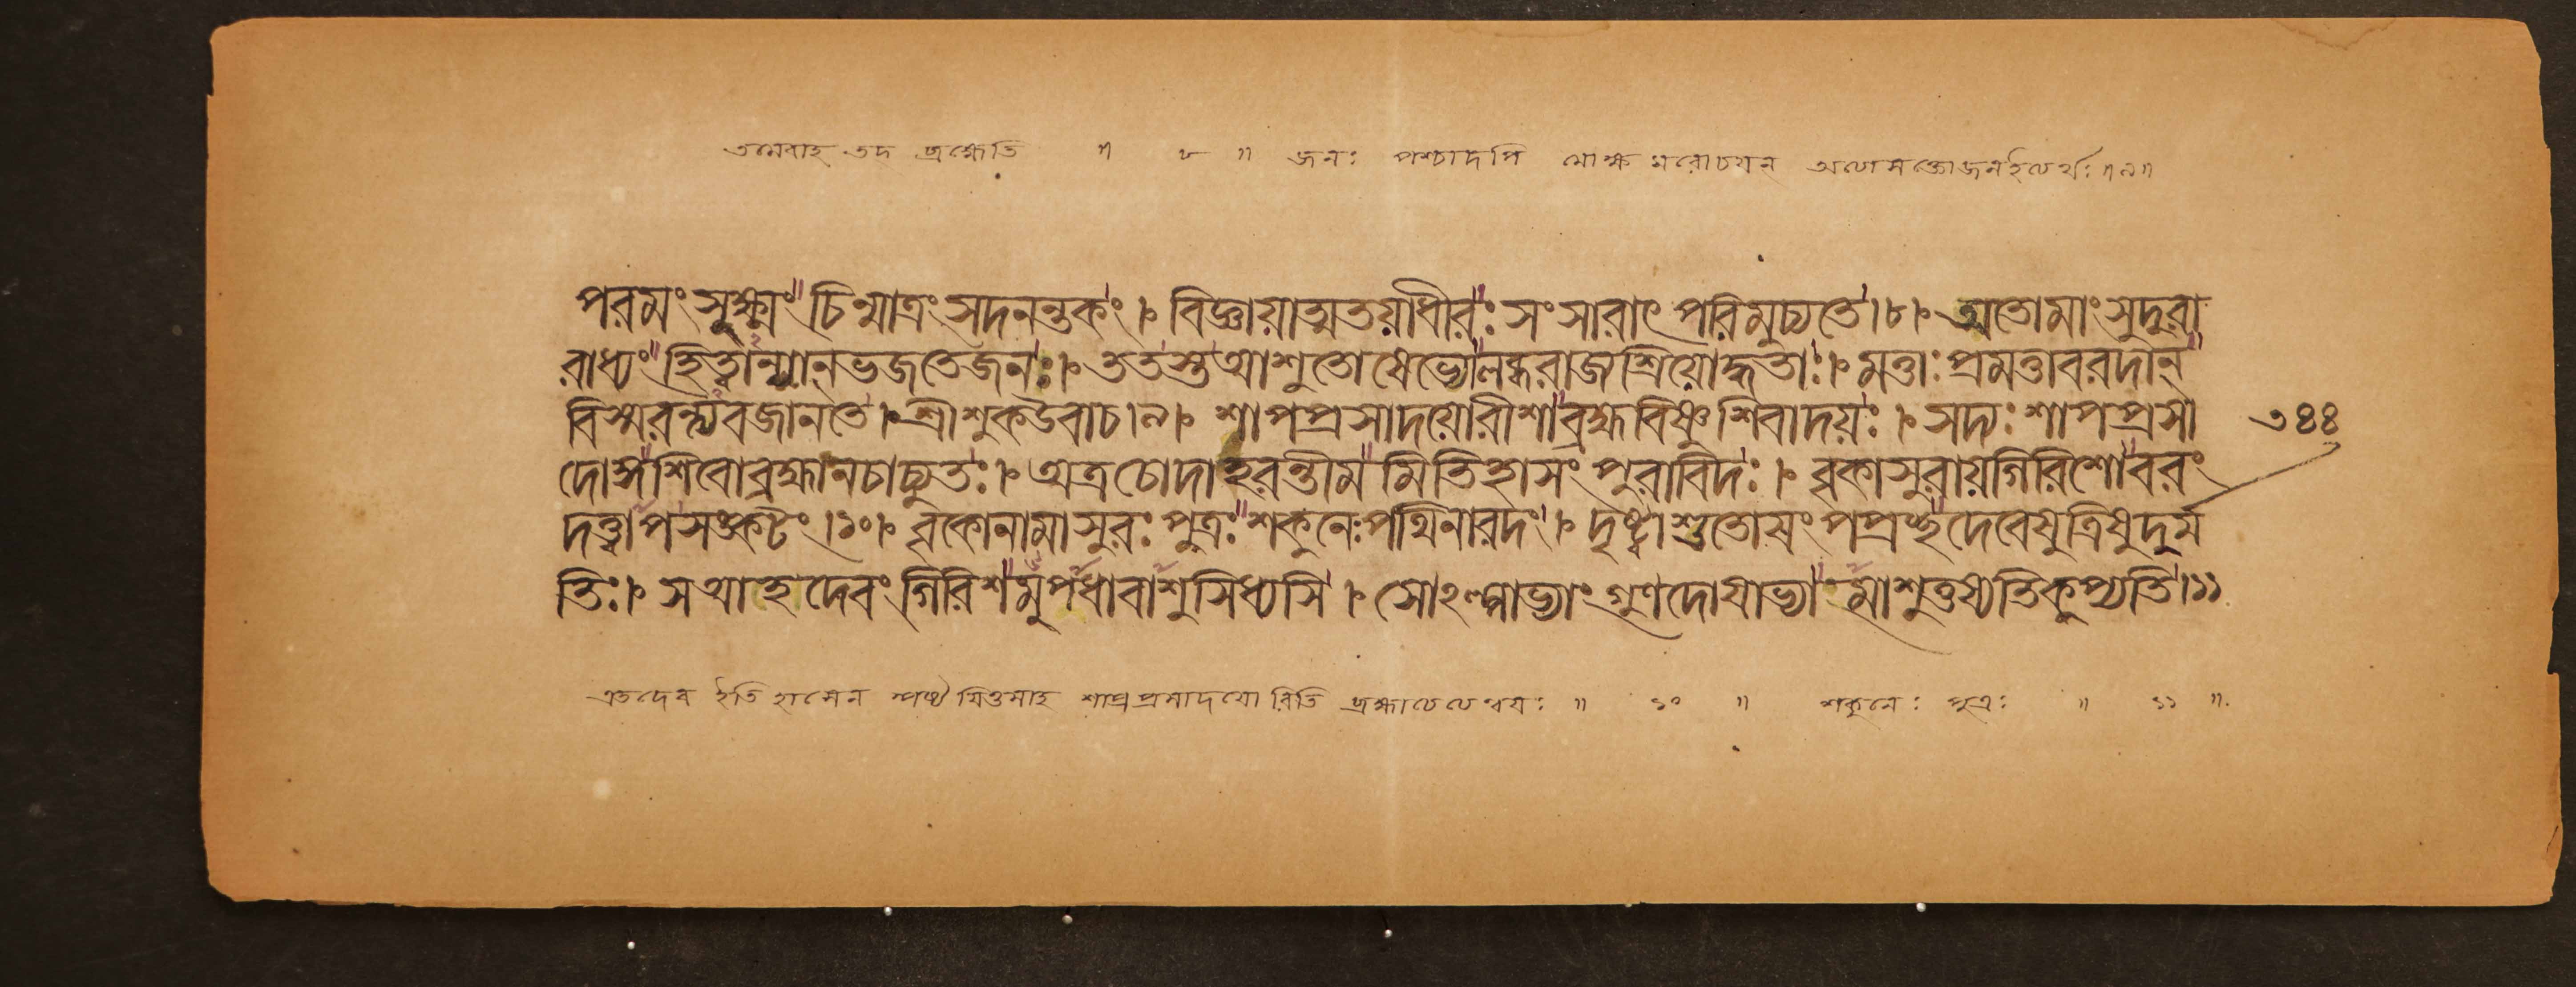 তমেবাহ তদ ব্রহ্মেতি ॥ ৮ ॥ জনঃ পশ্চাদপি মোক্ষ মরোচয়ন্ অতো মক্তোজনইত্যর্থঃ ॥৯॥
পরমং সূক্ষ্মং চিন্মাত্রং সদনন্তকং । বিজ্ঞায়াত্মতয়াধীরঃ সংসারাৎ পরিমুচ্যতে।৮। অতোমাং সুদুরা
রাধ্যং হিত্বান্যান্ভজতেজনঃ। ততস্তুআশুতোষেভ্যোলব্ধরাজ্যশ্রিয়োদ্ধতাঃ। মত্তাঃ প্রমত্তাবরদান্
বিস্মরন্ত্যবজানতে। শ্রীশুকউবাচ।৯। শাপপ্রসাদয়োরীশাব্রহ্মবিষ্ণুশিবাদয়ঃ । সদ্যঃ শাপপ্রসা ৩৪৪
দোঙ্গশিবোব্রহ্মানচাচ্যুতঃ। অত্রচোদাহরন্তীম মিতিহাসং পুরাবিদঃ । বৃকাসুরায়গিরিশোবরং
দত্ত্বাপসঙ্কটং।১০। বৃকোনামাসুরঃ পুত্রঃ শকুনেঃপথিনারদং । দৃষ্ট্বাশুতোষং পপ্রচ্ছদেবেষুত্রিষুদুর্ম
তিঃ। সআহদেবং গিরিশমুপধাবাশুসিধ্যসি । সোঽল্পাভ্যাং গুণদোষাভ্যা মাশুতুষ্যতিকুপ্যতি।১১
এতদেব ইতিহাসেন স্পষ্টয়িতুমাহ শাপপ্রসাদয়োরিতি ব্রহ্মাচেত্যন্বয়ঃ ॥ ১০ ॥ শকুনেঃ পুত্রঃ ॥ ১১ ॥